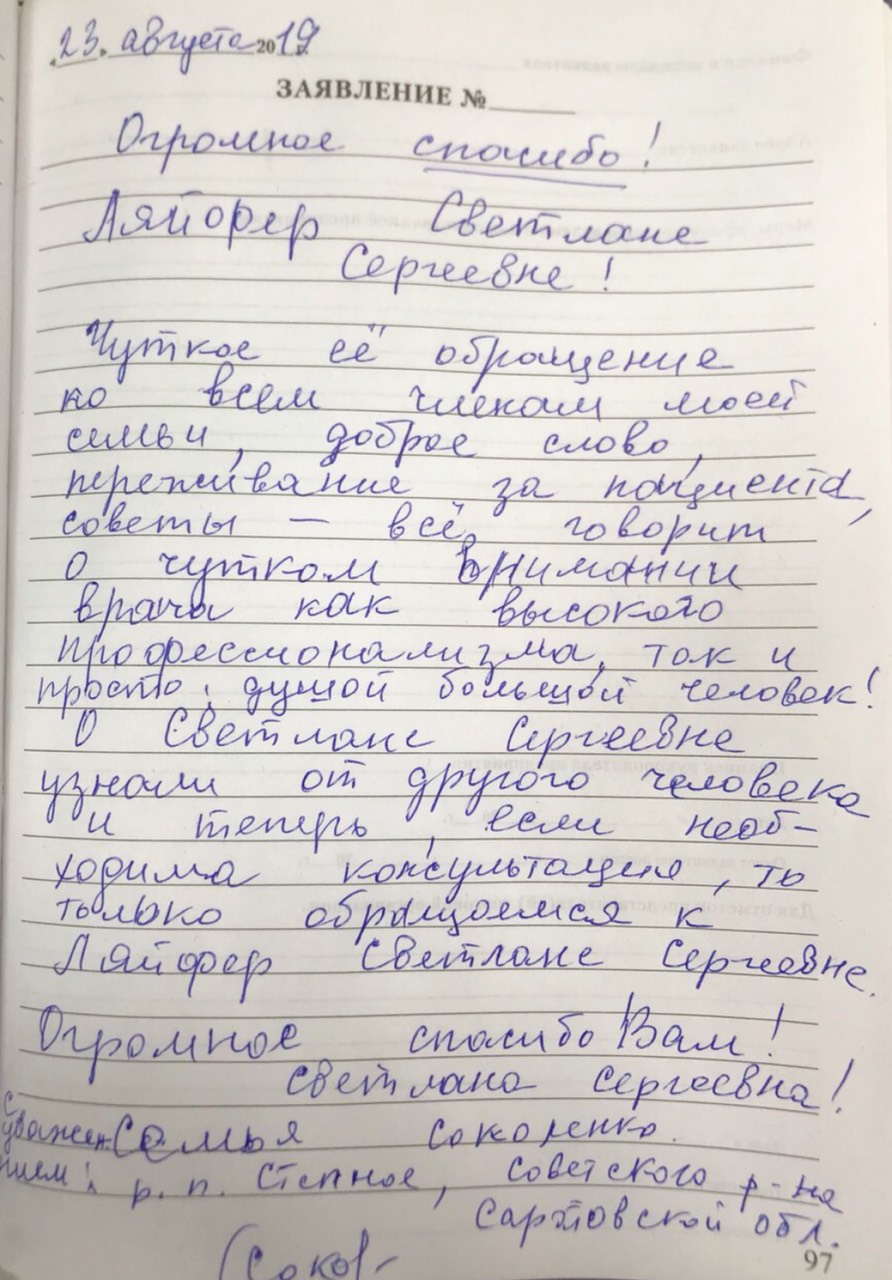 23. августа 2019
ЗАЯВЛЕНИЕ №
Огромное спасибо!
Ляйфер Светлане
Сергеевне!
Чуткое её обращение
ко всем членам моей
семьи, доброе слово,
переживание за пациента,
советы — всё говорит
о чутком внимании
врача как высокого
профессионализма, так и
просто, душой большой человек!
О Светлане Сергеевне
узнали от другого человека
и теперь, если необ-
ходима консультация, то
только обращаемся к
Ляйфер Светлане Сергеевне.
Огромное спасибо Вам!
Светлана Сергеевна!
с уважением! Семья Соколенко
р.п. Степное, Советского р-на
Саратовской обл.
97